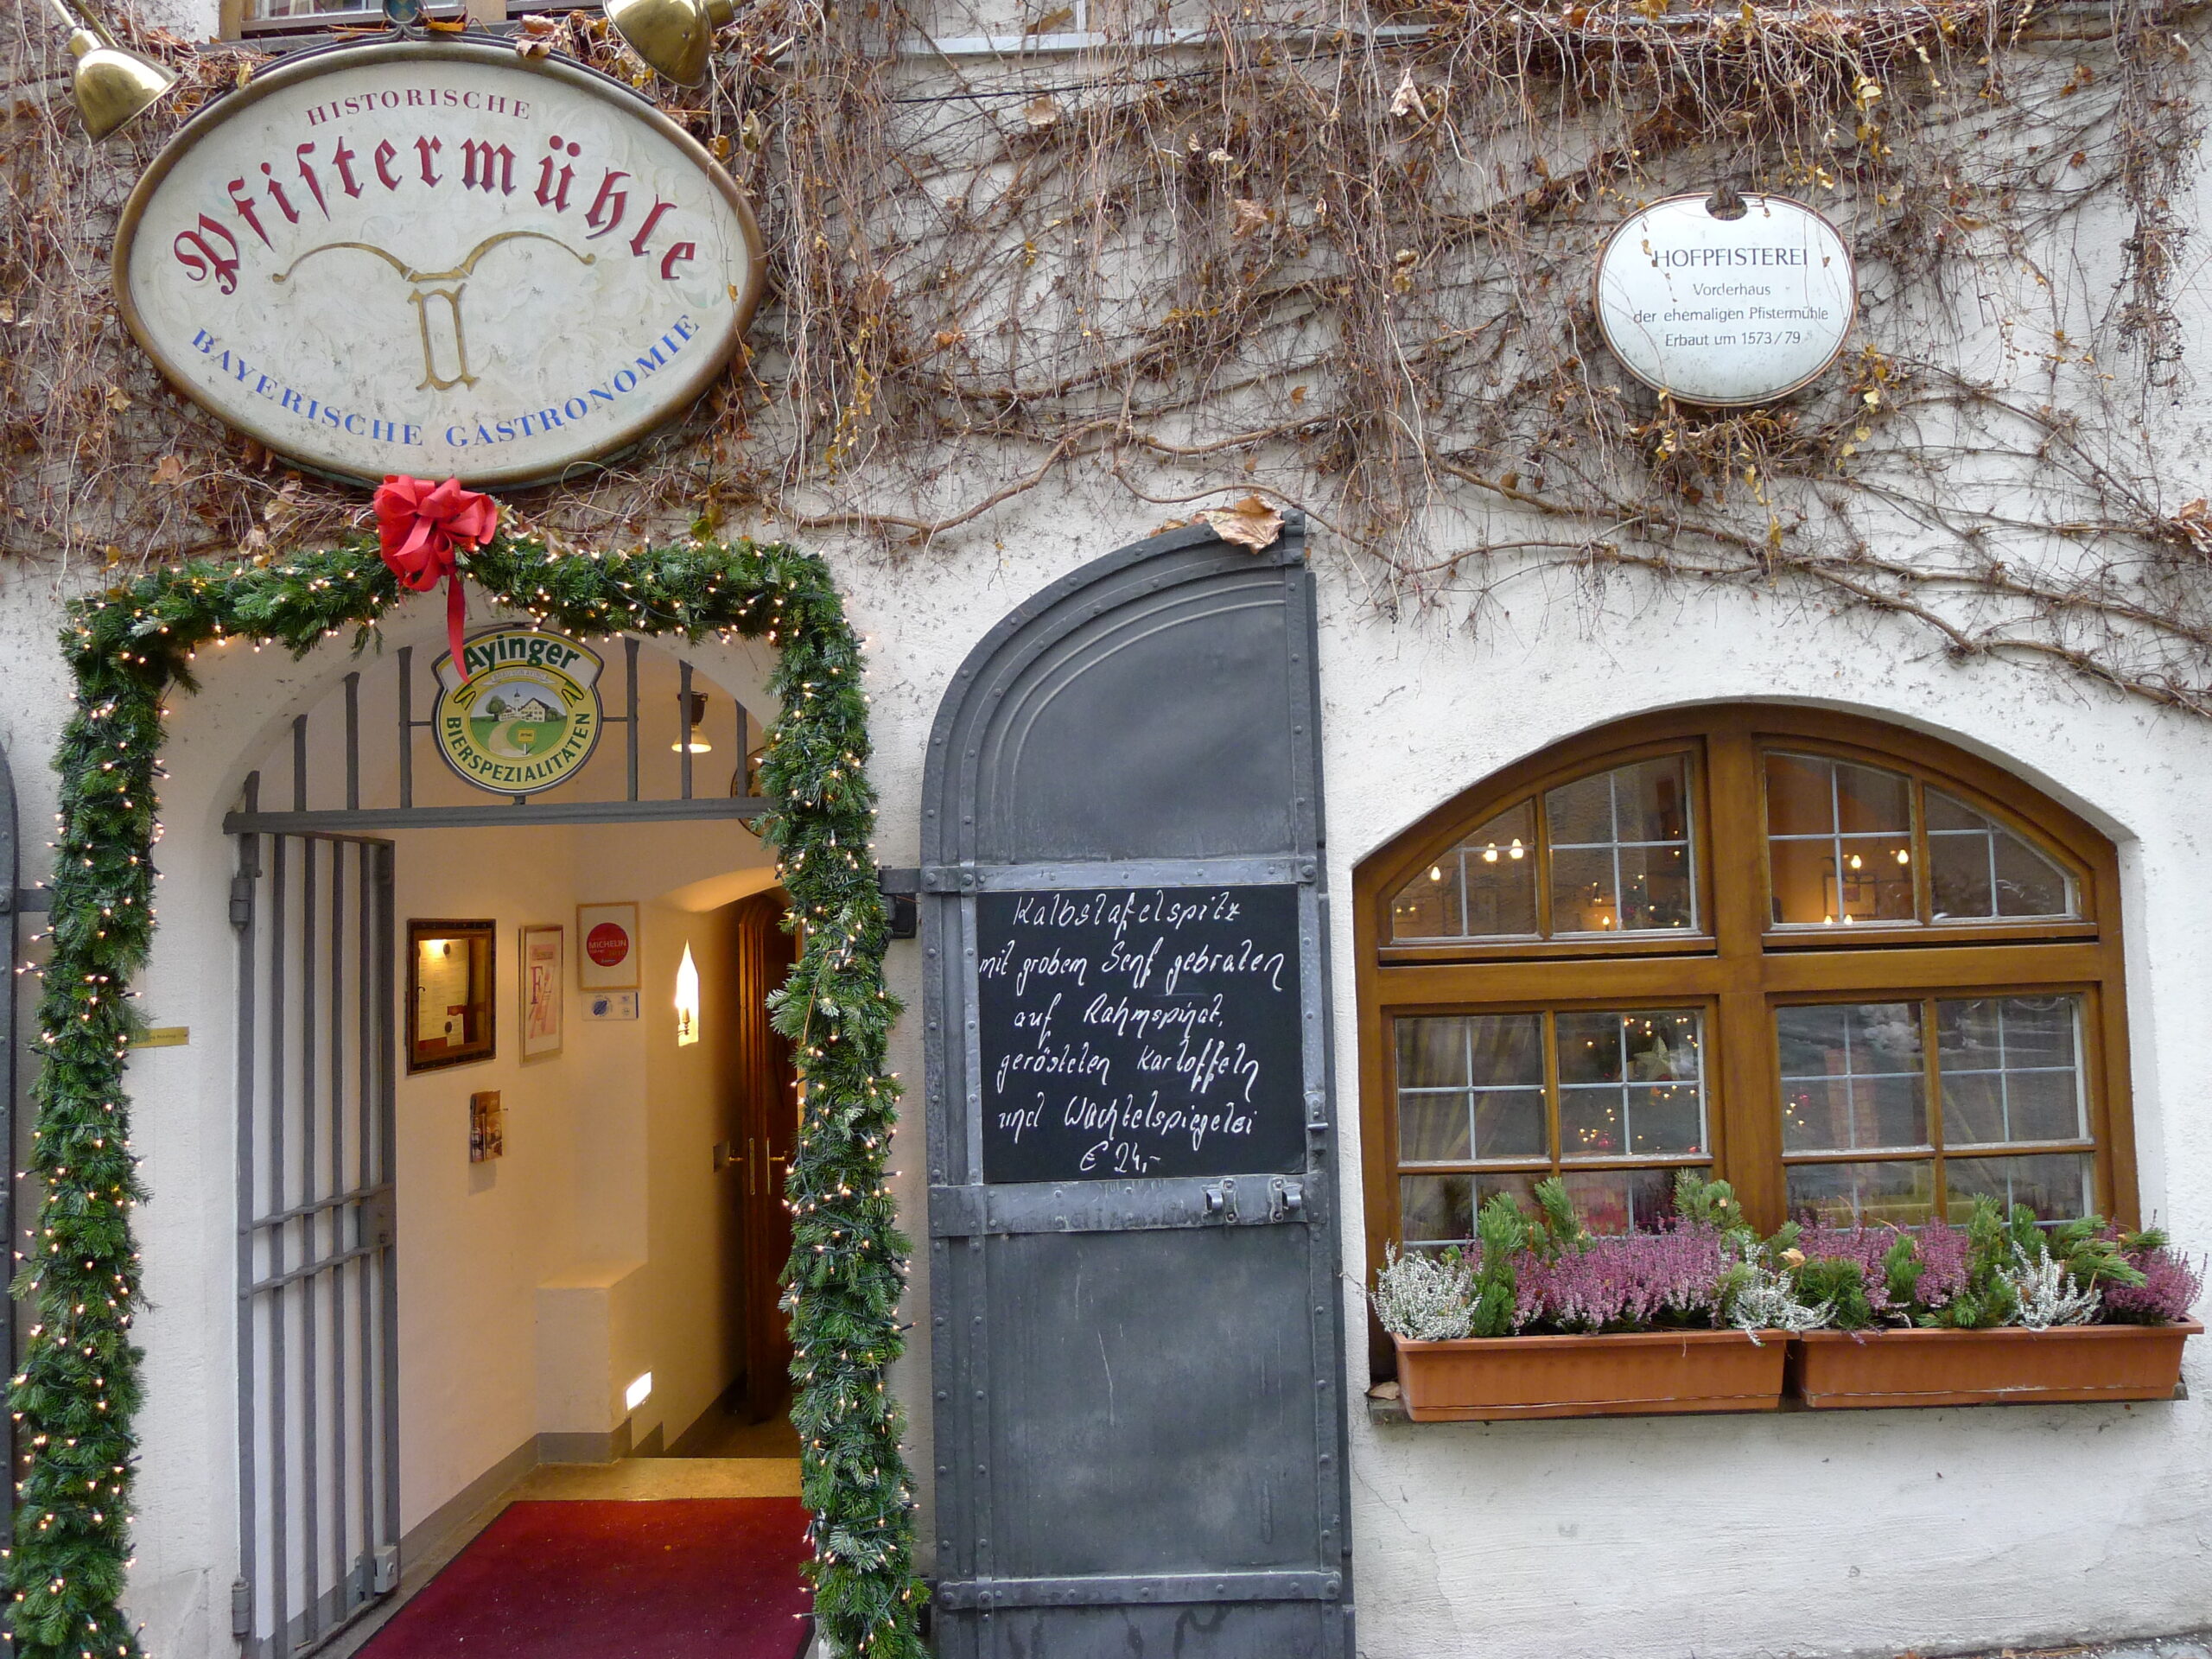 HISTORISCHE
Pfiſtermühle
BAYERISCHE GASTRONOMIE
HOFPFISTEREI
Vorderhaus
der ehemaligen Pfistermühle
Erbaut um 1573/79
Ayinger
BIERSPEZIALITÄTEN
MICHELIN
Kalbstafelspitz
mit grobem Senf gebraten
auf Rahmspinat,
gerösteten Kartoffeln
und Wachtelspiegelei
€ 24,-